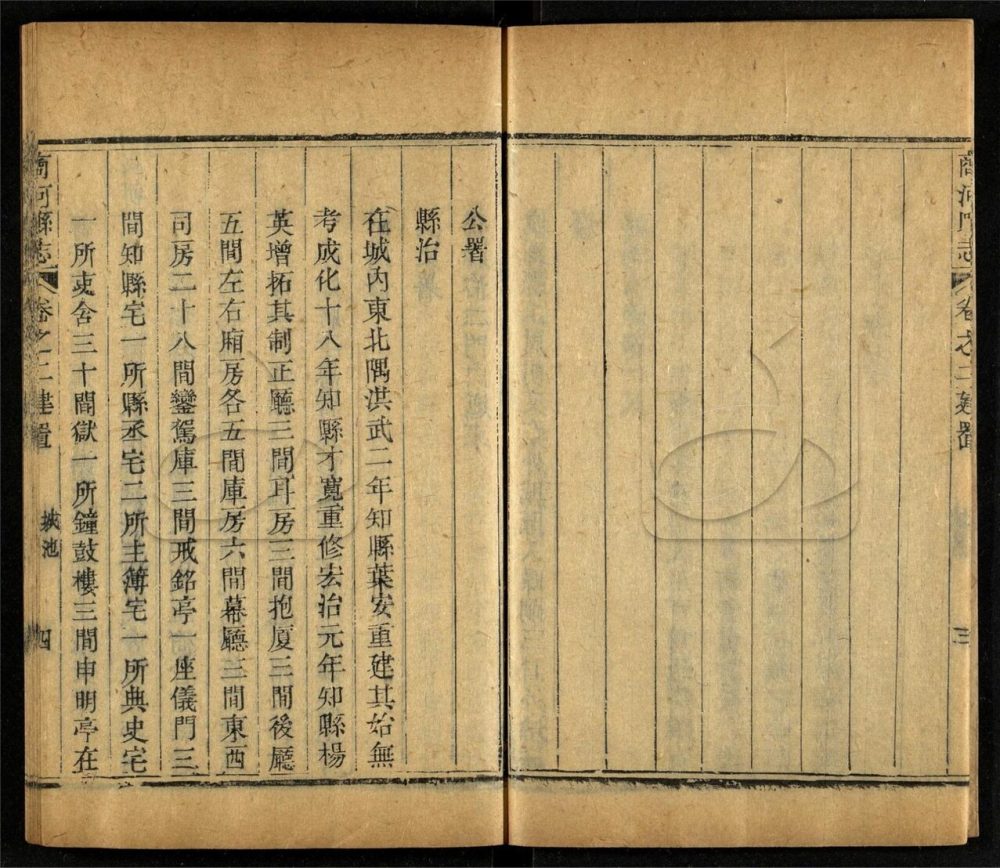 商河縣志 卷之二建置 三
公署
縣治
在城內東北隅洪武二年知縣葉安重建其始無
考成化十八年知縣才寬重修宏治元年知縣楊
英增拓其制正廳三間耳房三間抱厦三間後廳
五間左右廂房各五間庫房六間幕廳三間東西
司房二十八間鑾駕庫三間戒銘亭一座儀門三
間知縣宅一所縣丞宅二所主簿宅一所典史宅
一所吏舍三十間獄一所鐘鼓樓三間申明亭在
商河縣志 卷之二建置 城池 四